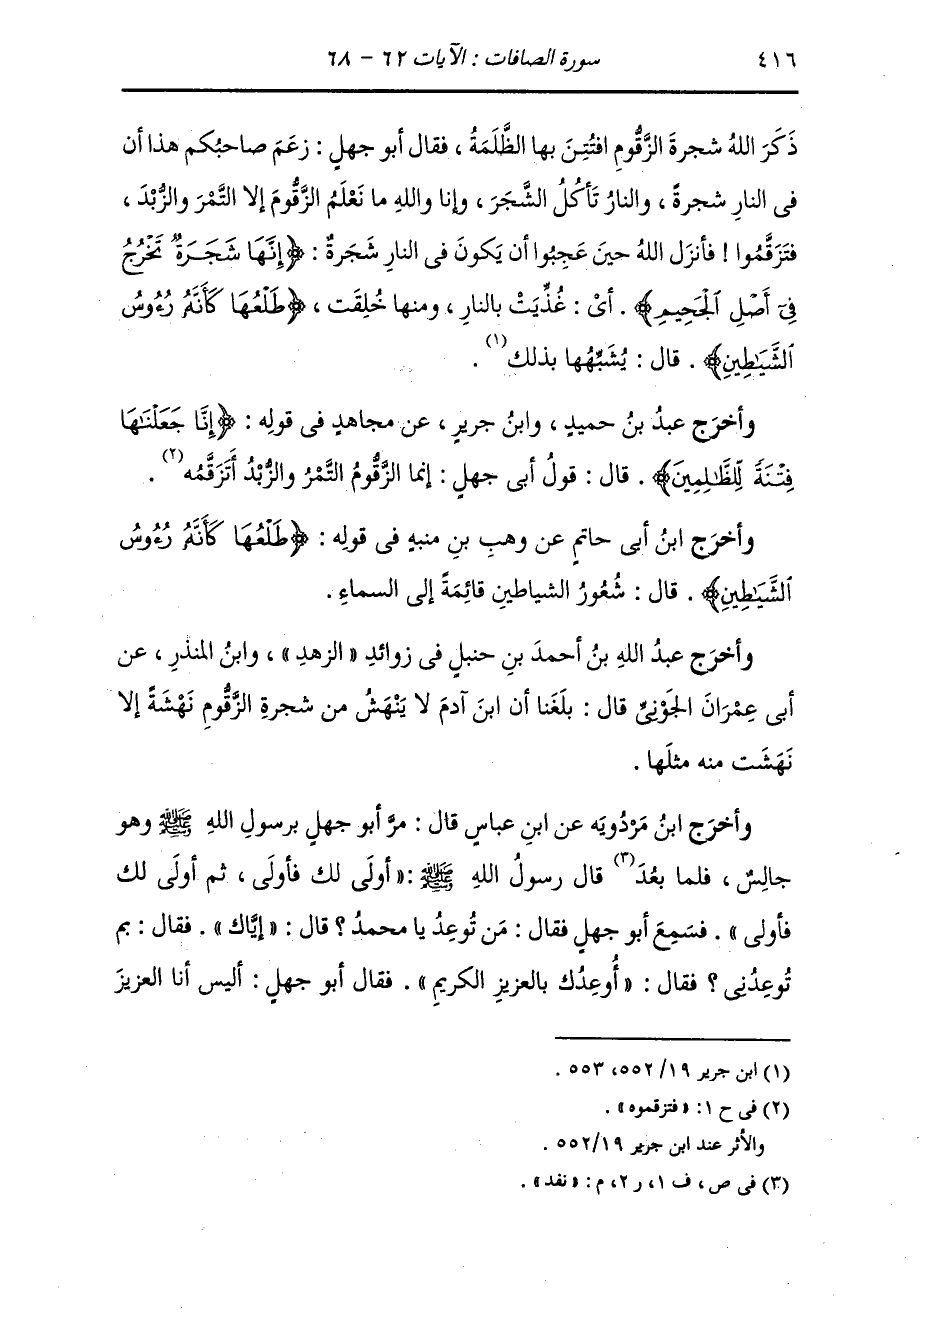 ٤١٦ سورة الصافات : الآيات ٦٢ – ٦٨
ذَكَرَ اللهُ شجرةَ الزَّقُّومِ افتُتِنَ بها الظَّلَمَةُ ، فقال أبو جهلٍ : زعَمَ صاحبُكم هذا أن
فى النارِ شجرةً ، والنارُ تَأكُلُ الشَّجَرَ ، وإنا واللهِ ما نَعْلَمُ الزَّقُّومَ إلا التَّمْرَ والزُّبْدَ ،
فتَزَقَّمُوا ! فأنزَل اللهُ حينَ عَجِبُوا أن يَكونَ فى النارِ شَجَرةٌ : ﴿إِنَّهَا شَجَرَةٌ تَخْرُجُ
فِىٓ أَصْلِ ٱلْجَحِيمِ﴾ . أىْ : غُذِّيَتْ بالنارِ ، ومنها خُلِقَت ، ﴿طَلْعُهَا كَأَنَّهُۥ رُءُوسُ
ٱلشَّيَٰطِينِ﴾ . قال : يُشَبِّهُها بذلك(١) .
وأخرَج عبدُ بنُ حميدٍ ، وابنُ جريرٍ ، عن مجاهدٍ فى قولِه : ﴿إِنَّا جَعَلْنَٰهَا
فِتْنَةً لِّلظَّٰلِمِينَ﴾ . قال : قولُ أبى جهلٍ : إنما الزَّقُّومُ التَّمْرُ والزُّبْدُ أَتَزَقَّمُه(٢) .
وأخرَج ابنُ أبى حاتمٍ عن وهبِ بنِ منبهٍ فى قولِه : ﴿طَلْعُهَا كَأَنَّهُۥ رُءُوسُ
ٱلشَّيَٰطِينِ﴾ . قال : شُعُورُ الشياطينِ قائِمَةً إلى السماءِ .
وأخرَج عبدُ اللهِ بنُ أحمدَ بنِ حنبلٍ فى زوائدِ «الزهدِ» ، وابنُ المنذرِ ، عن
أبى عِمْرَانَ الجَوْنِىِّ قال : بلَغَنا أن ابنَ آدمَ لا يَنْهَشُ من شجرةِ الزَّقُّومِ نَهْشَةً إلا
نَهَشَت منه مثلَها .
وأخرَج ابنُ مَرْدُويَه عن ابنِ عباسٍ قال : مرَّ أبو جهلٍ برسولِ اللهِ ﷺ وهو
جالِسٌ ، فلما بعُدَ(٣) قال رسولُ اللهِ ﷺ :«أولَى لك فأولَى ، ثم أولَى لك
فأولى» . فسَمِعَ أبو جهلٍ فقال : مَن تُوعِدُ يا محمدُ ؟ قال : «إيَّاك» . فقال : بم
تُوعِدُنِى ؟ فقال : «أُوعِدُك بالعزيزِ الكريمِ» . فقال أبو جهلٍ : أليس أنا العزيزَ
(١) ابن جرير ١٩/ ٥٥٢، ٥٥٣ .
(٢) فى ح ١: «فتزقموه» .
والأثر عند ابن جرير ٥٥٢/١٩ .
(٣) فى ص، ف ١، ر ٢، م : «نفد» .